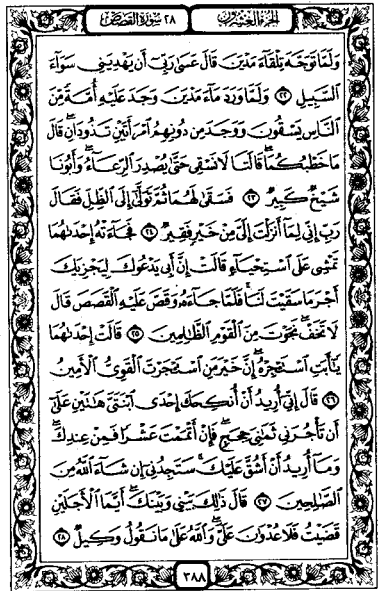 الجزء العشرون ٢٨ سورة القصص
وَلَمَّا تَوَجَّهَ تِلْقَاءَ مَدْيَنَ قَالَ عَسَىٰ رَبِّي أَن يَهْدِيَنِي سَوَاءَ
السَّبِيلِ ٢٢ وَلَمَّا وَرَدَ مَاءَ مَدْيَنَ وَجَدَ عَلَيْهِ أُمَّةً مِّنَ
النَّاسِ يَسْقُونَ وَوَجَدَ مِن دُونِهِمُ امْرَأَتَيْنِ تَذُودَانِ ۖ قَالَ
مَا خَطْبُكُمَا ۖ قَالَتَا لَا نَسْقِي حَتَّىٰ يُصْدِرَ الرِّعَاءُ ۖ وَأَبُونَا
شَيْخٌ كَبِيرٌ ٢٣ فَسَقَىٰ لَهُمَا ثُمَّ تَوَلَّىٰ إِلَى الظِّلِّ فَقَالَ
رَبِّ إِنِّي لِمَا أَنزَلْتَ إِلَيَّ مِنْ خَيْرٍ فَقِيرٌ ٢٤ فَجَاءَتْهُ إِحْدَاهُمَا
تَمْشِي عَلَى اسْتِحْيَاءٍ قَالَتْ إِنَّ أَبِي يَدْعُوكَ لِيَجْزِيَكَ
أَجْرَ مَا سَقَيْتَ لَنَا ۚ فَلَمَّا جَاءَهُ وَقَصَّ عَلَيْهِ الْقَصَصَ قَالَ
لَا تَخَفْ ۖ نَجَوْتَ مِنَ الْقَوْمِ الظَّالِمِينَ ٢٥ قَالَتْ إِحْدَاهُمَا
يَا أَبَتِ اسْتَأْجِرْهُ ۖ إِنَّ خَيْرَ مَنِ اسْتَأْجَرْتَ الْقَوِيُّ الْأَمِينُ
٢٦ قَالَ إِنِّي أُرِيدُ أَنْ أُنكِحَكَ إِحْدَى ابْنَتَيَّ هَاتَيْنِ عَلَىٰ
أَن تَأْجُرَنِي ثَمَانِيَ حِجَجٍ ۖ فَإِنْ أَتْمَمْتَ عَشْرًا فَمِنْ عِندِكَ ۖ
وَمَا أُرِيدُ أَنْ أَشُقَّ عَلَيْكَ ۚ سَتَجِدُنِي إِن شَاءَ اللَّهُ مِنَ
الصَّالِحِينَ ٢٧ قَالَ ذَٰلِكَ بَيْنِي وَبَيْنَكَ ۖ أَيَّمَا الْأَجَلَيْنِ
قَضَيْتُ فَلَا عُدْوَانَ عَلَيَّ ۖ وَاللَّهُ عَلَىٰ مَا نَقُولُ وَكِيلٌ ٢٨
٣٨٨